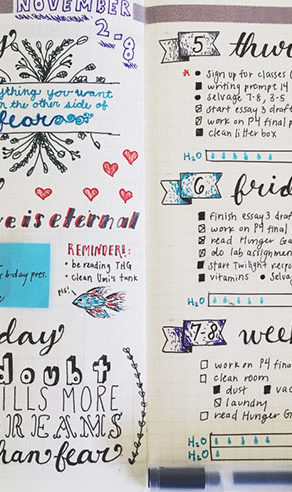 NOVEMBER
2-8
y
ything you want
the other side of
fear
e is eternal
REMINDERS:
• be reading THG
• clean Umi's tank
psst!
b-day pres.
day
doubt
ILLS MORE
REAMS
han fear
5 thur
sign up for classes (
writing prompt 14
selvage 7-8, 3-5
start essay 3 draft
work on P4 final p
clean litter box
H₂O
6 frid
finish essay 3 draft
work on P4 final
read Hunger Ga
do lab assignmen
start Twilight respo
vitamins • Selva
H₂O
7-8 week
work on P4 fina
clean room
dust vac
laundry
read Hunger G
H₂O
H₂O